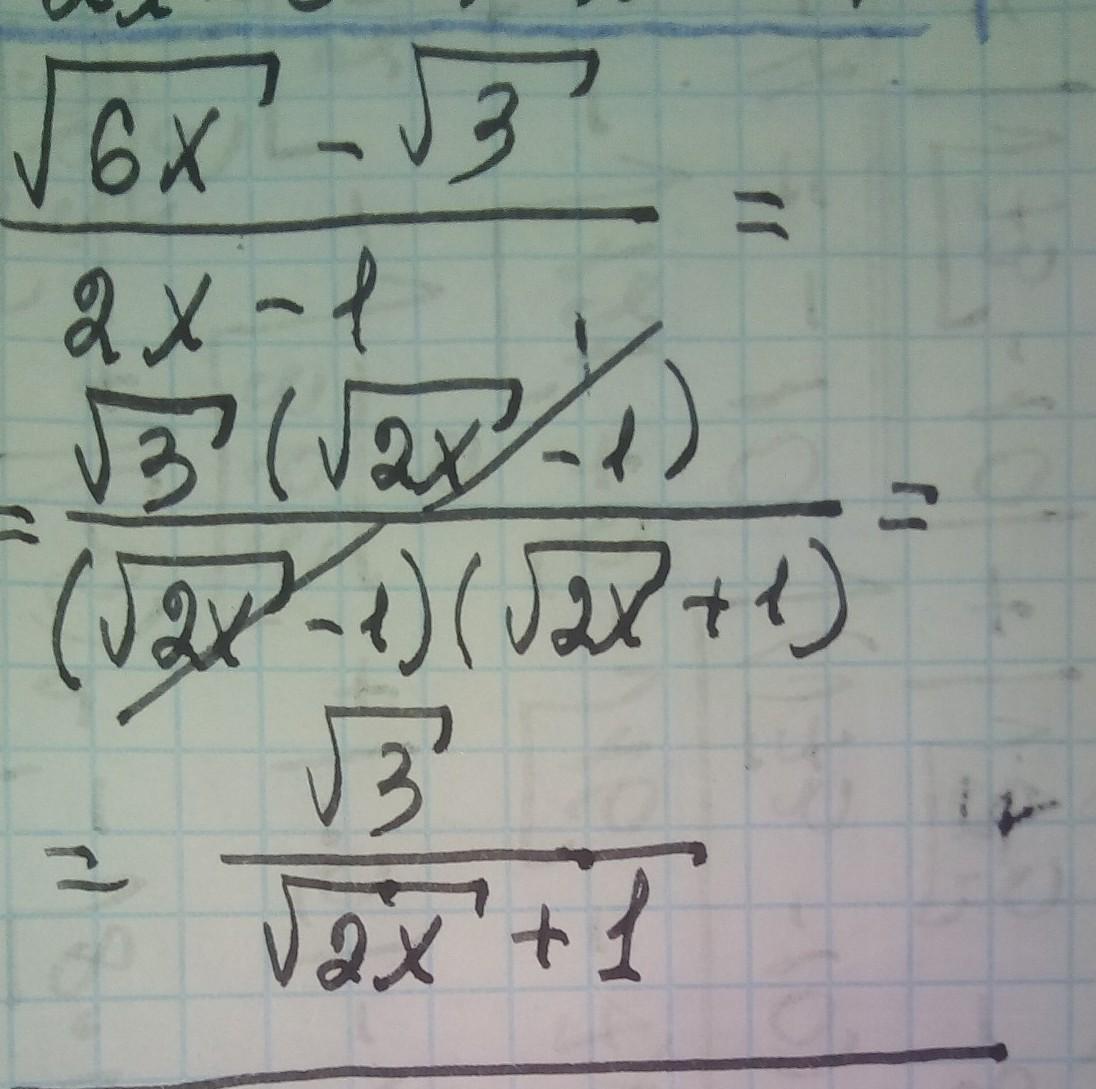 √6x - √3
=
2x - 1
= √3 (√2x - 1)
=
(√2x - 1)(√2x + 1)
√3
=
√2x + 1